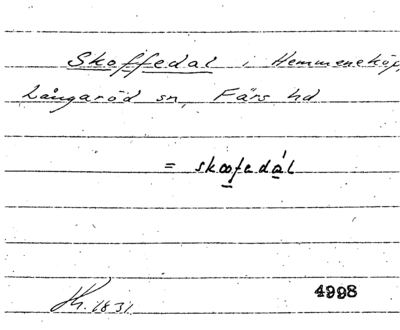 Skoffedal i Hemmeneköp,
Långaröd sn, Färs hd
= skoofedál
1831.
4998